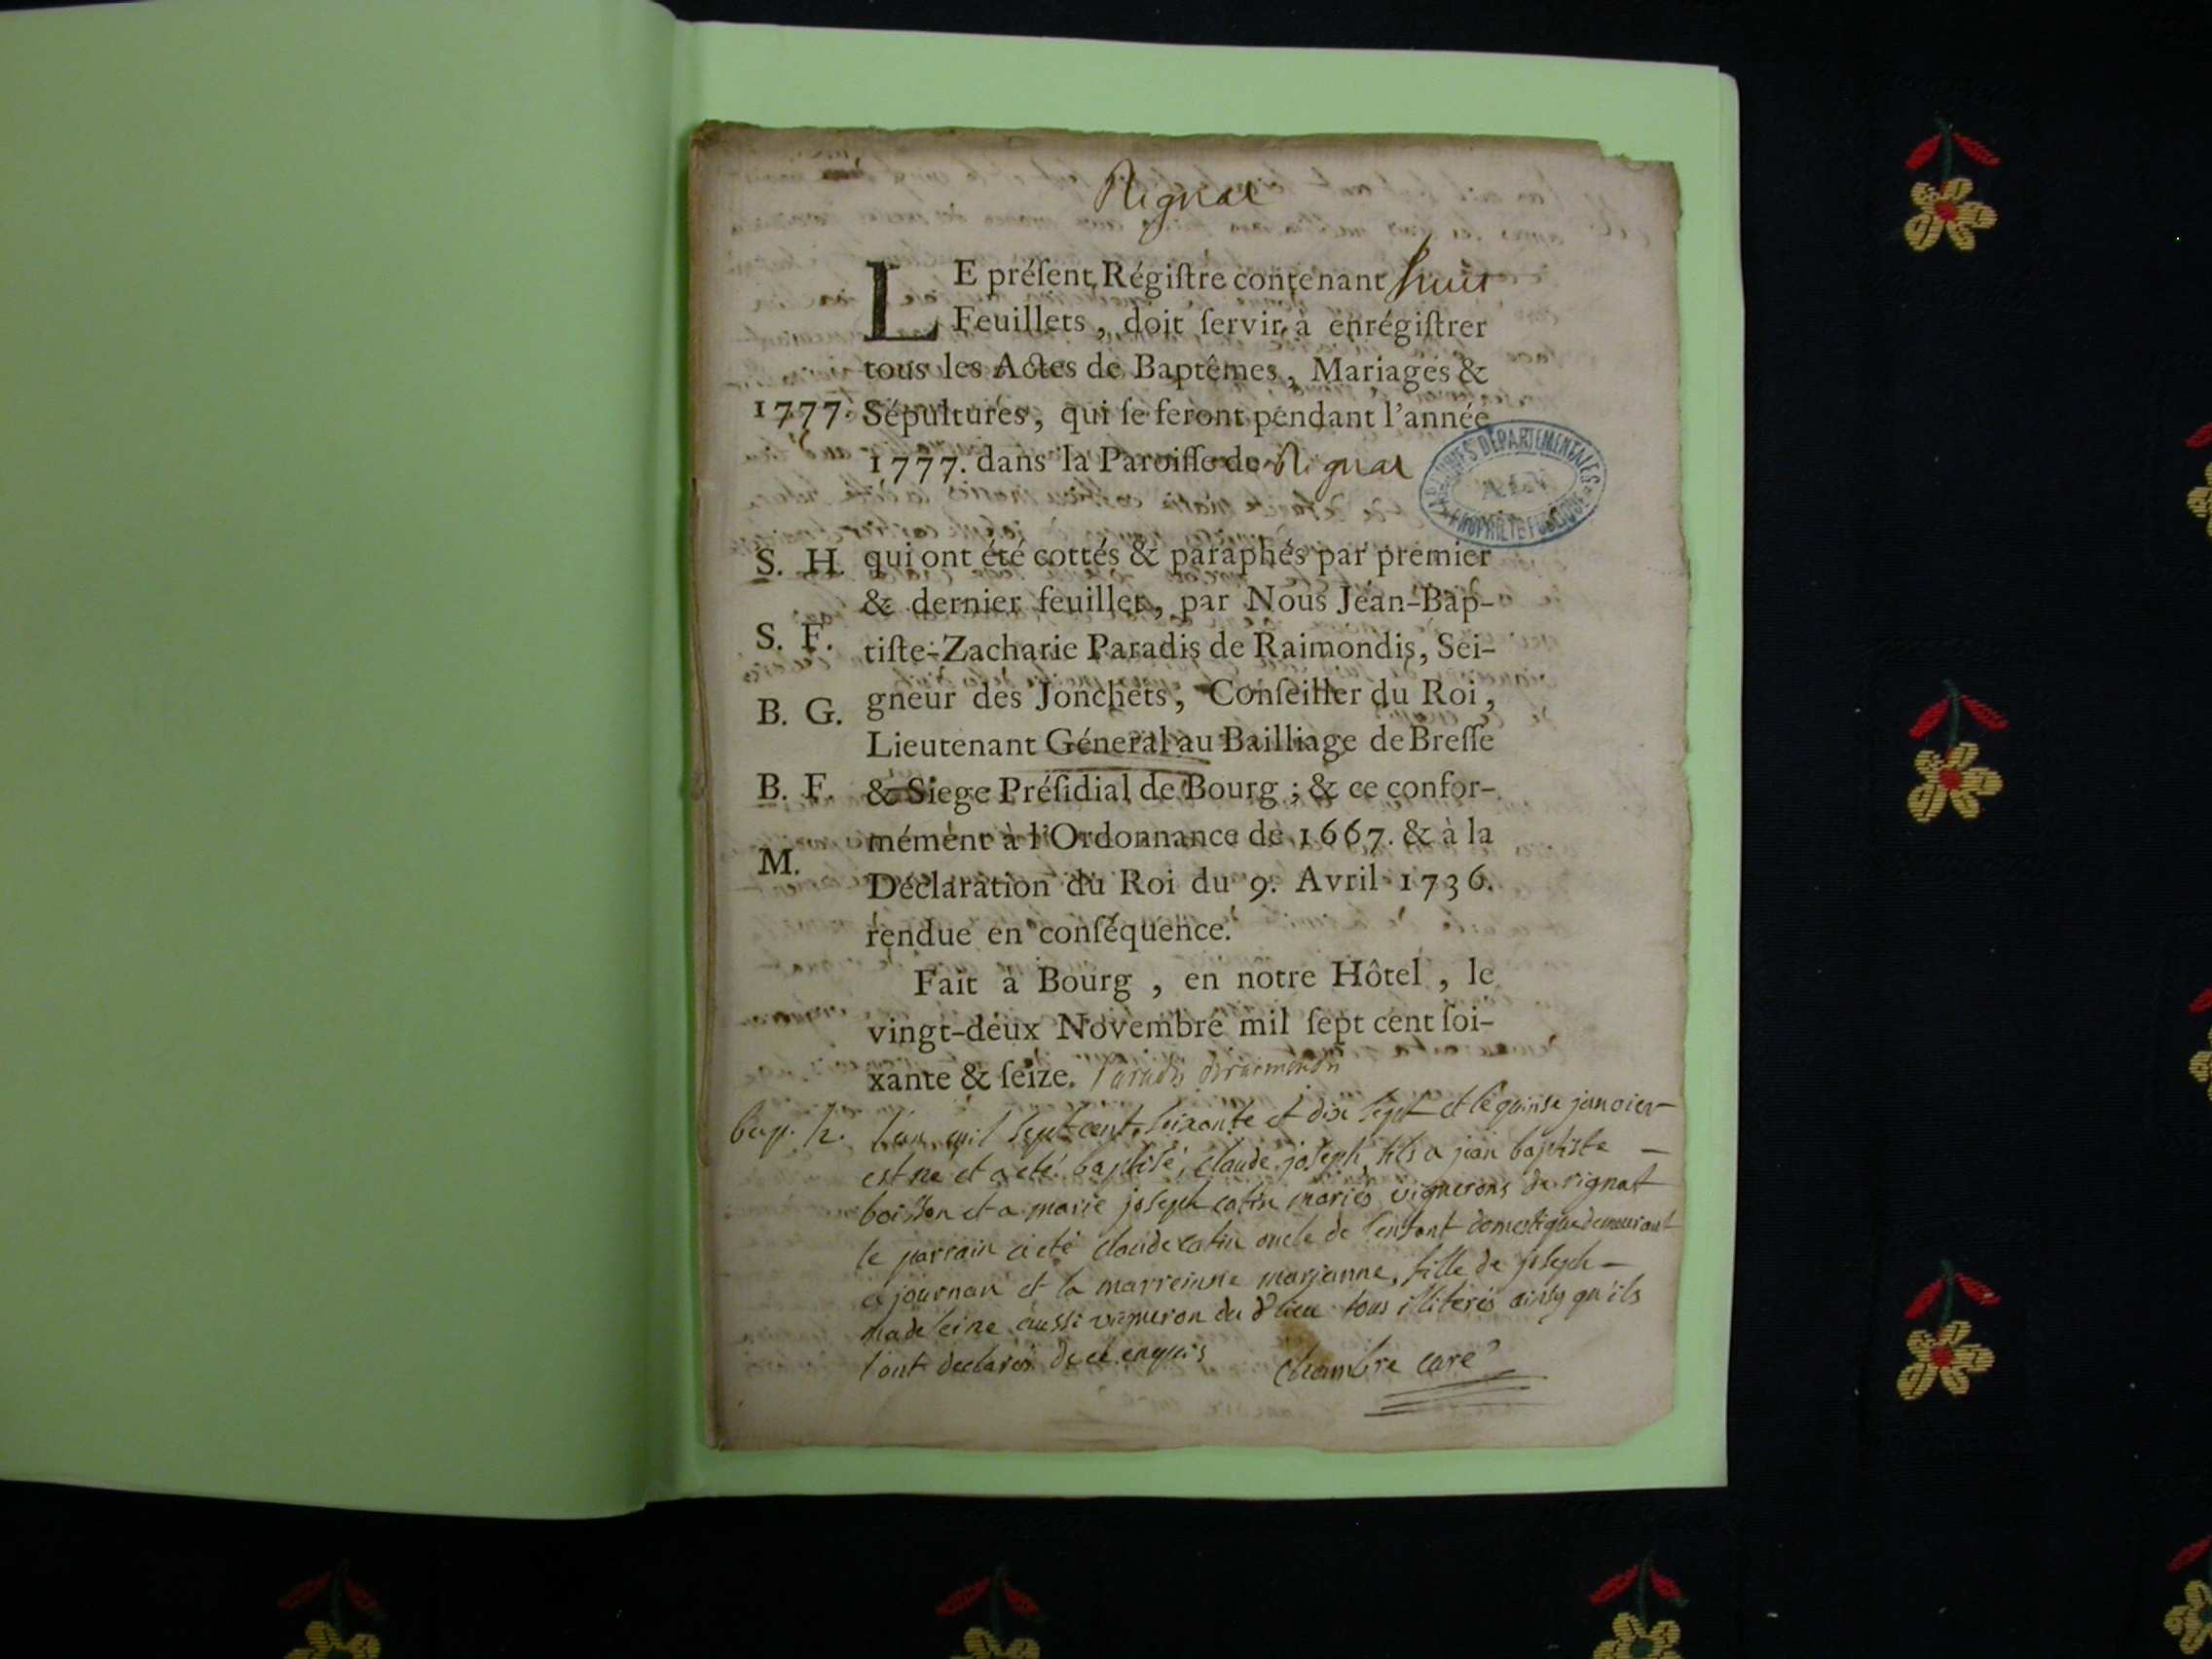 Rignat
LE préſent Régiſtre contenant huit
Feuillets, doit ſervir à enrégiſtrer
tous les Actes de Baptêmes, Mariages &
1777. Sépultures, qui ſe feront pendant l'année
1777. dans la Paroiſſe de Rignat
ARCHIVES DÉPARTEMENTALES
AIN
PROPRIÉTÉ PUBLIQUE
S. H. qui ont été cottés & paraphés par premier
& dernier feuillet, par Nous Jean-Bap-
S. F. tiſte-Zacharie Paradis de Raimondis, Sei-
B. G. gneur des Jonchets, Conſeiller du Roi,
Lieutenant Géneral au Bailliage de Breſſe
B. F. & Siege Préſidial de Bourg ; & ce confor-
mément à l'Ordonnance de 1667. & à la
M. Déclaration du Roi du 9. Avril 1736.
rendue en conſéquence.
Fait à Bourg, en notre Hôtel, le
vingt-deux Novembre mil ſept cent ſoi-
xante & ſeize. Paradis deraimondis
bap. h. l'an mil sept cent soixante et dix sept et le quinse janvier
est né et a eté baptisé, claude joseph fils a jean baptiste
boisson et a marie joseph catin mariés vignerons de rignat
le parrain a eté claude catin oncle de l'enfant domestique demeurant
a journan et la marreinne marjanne, fille de joseph
madeleine aussi vigneron du d lieu tous illiterés ainsy qu'ils
l'ont declarés de ce enquis
Chambre curé